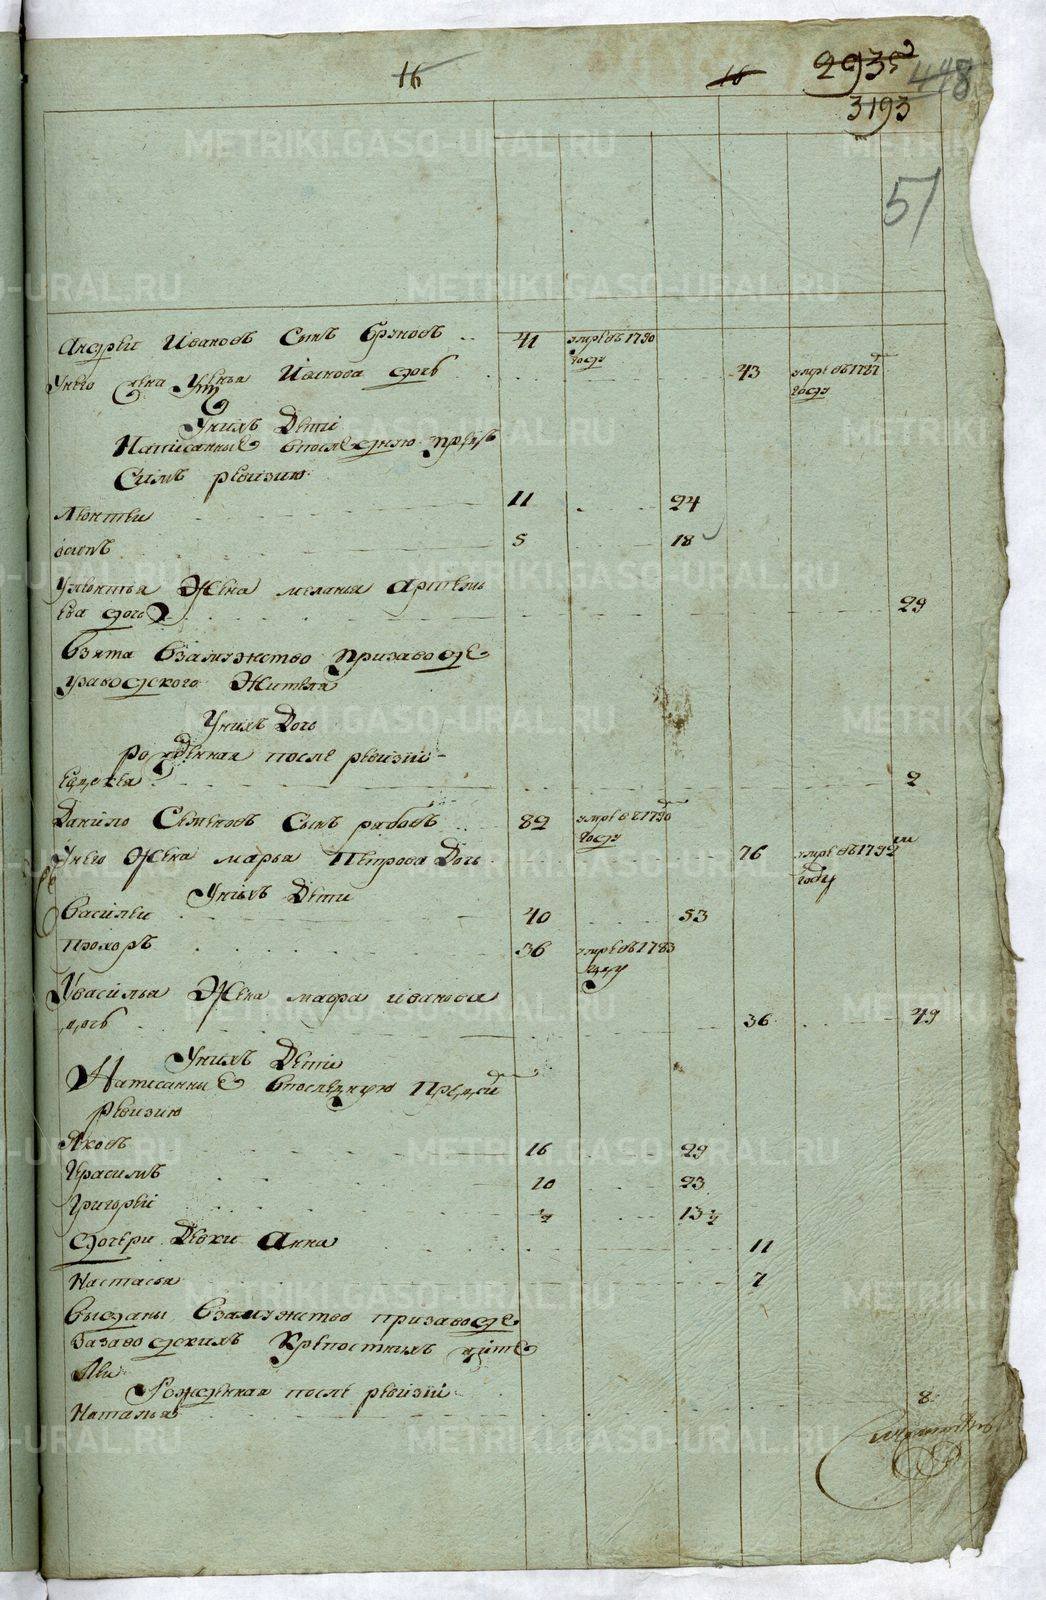 16 16 2935 448
3193
51
Андрей Ивановъ Сынъ 41 умре въ 1790
году
Унего жена Иванова дочь 43 умре въ 1787
году
Унихъ Дети
Написанные впоследнюю пред
Симъ ревизию
Леонтеи 11 24
осипъ 5 18
Улеонтья Жена меланья Артемь
ева дочь 29
Взята взамужство призаводе
Жителя
Унихъ Дочь
рожденная после ревизий
2
Данило Семеновъ Сынъ рябовъ 82 умре въ 1790
году
Унего Жена марья Петрова Дочь 76 умре въ 1792
году
Унихъ Дети
Василеи 40 53
Прохоръ 36 умре въ 1783
году
Увасилья Жена мафра иванова
дочь 36 49
Унихъ Дети
Написанные впоследнюю Пред сей
ревизию
Яковъ 16 29
Герасимъ 10 23
Григорей 13 1/2
дочери Девки Анна 11
Настасья 7
Выданы Взамужство призаводе
Зазаводскихъ Крепостныхъ жите
лей
Рожденная после ревизий
Наталья 8